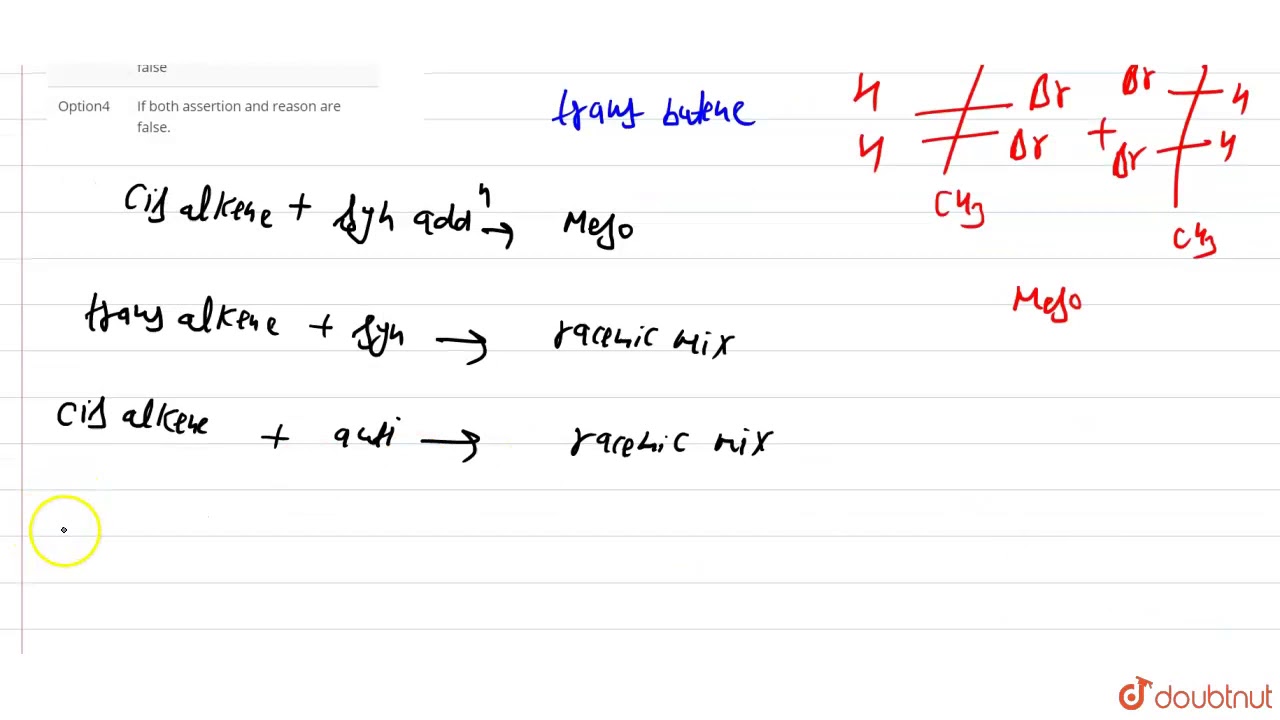 false
Option4 If both assertion and reason are
false.
trans butene
H Br Br H
H Br + Br H
CH3 CH3
Meso
Cis alkene + syn addn → Meso
trans alkene + syn → racemic mix
Cis alkene + anti → racemic mix
doubtnut